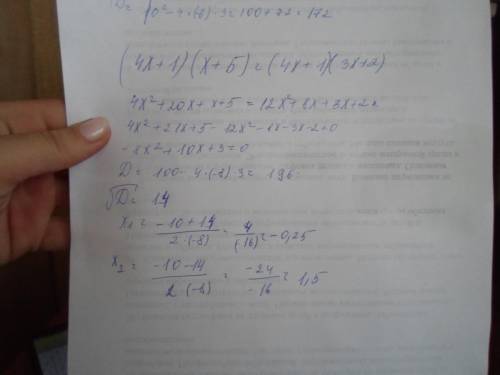 D= 10²-4·(-6)·3=100+72=172
(4x+1)(x+5)=(4x+1)(3x+2)
4x²+20x+x+5=12x²+8x+3x+2
4x²+21x+5-12x²-8x-3x-2=0
-8x²+10x+3=0
D= 100-4·(-8)·3= 196
√D= 14
x₁= -10+14 / 2·(-8) = 4 / (-16) = -0,25
x₂= -10-14 / 2·(-8) = -24 / -16 = 1,5